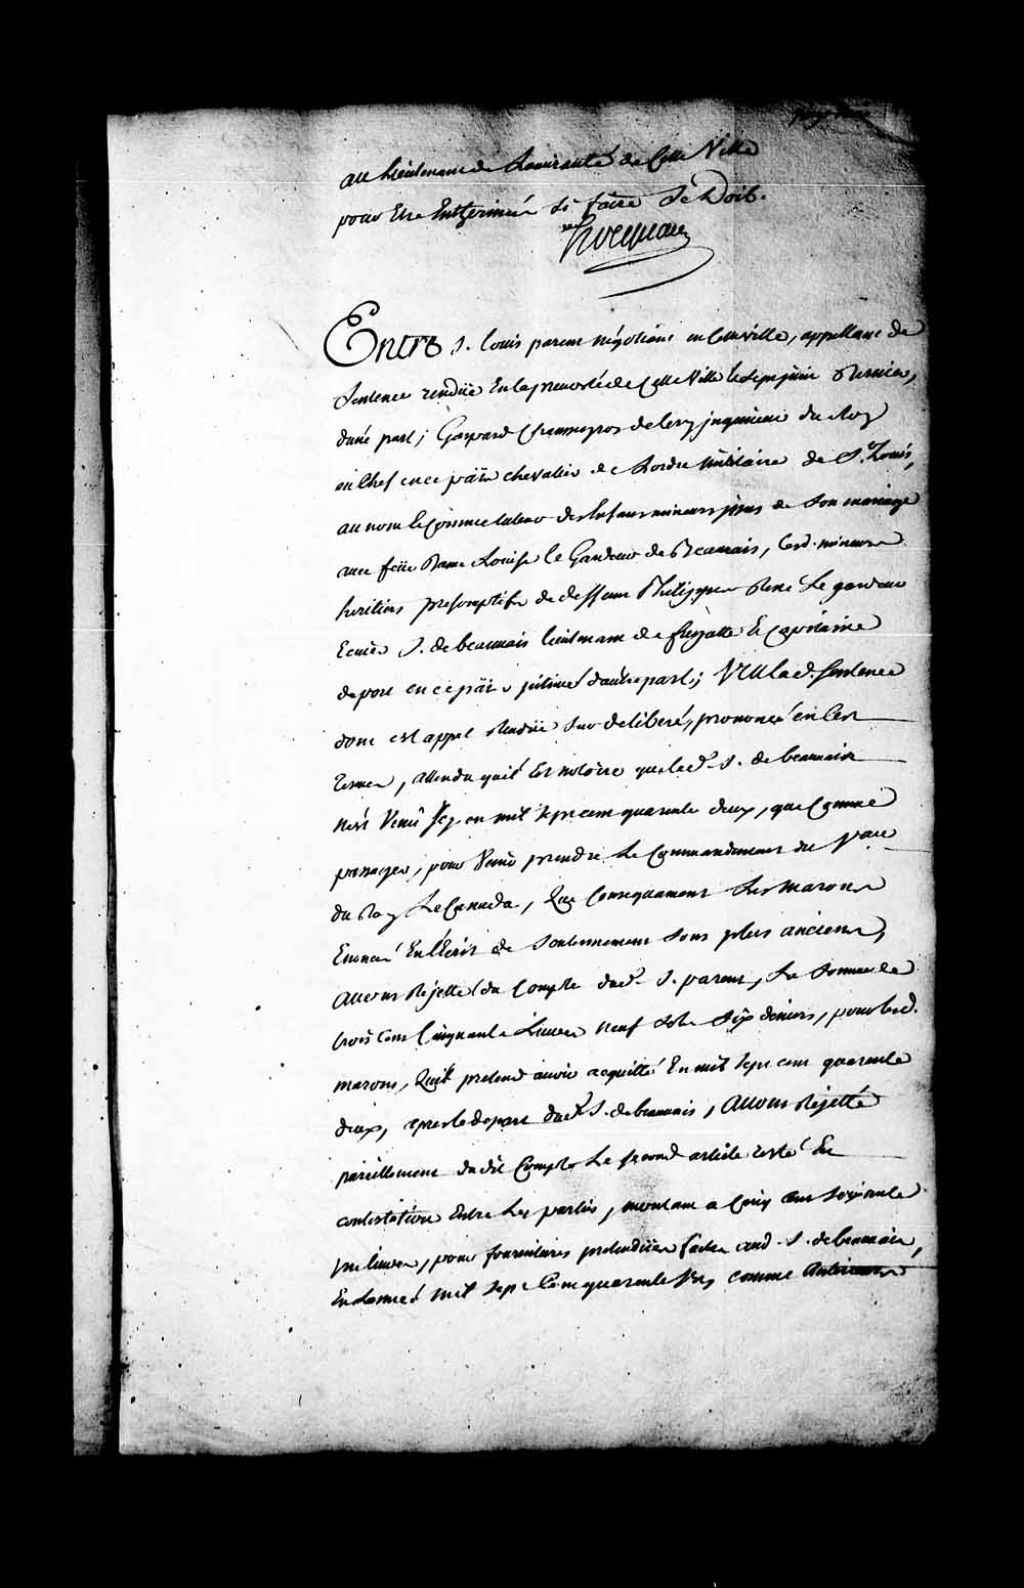 au Lieutenant de Lamirauté de Cette Ville
pour Etre Entheriné si faire Se Doit.
hocquart
Entre S. Louis parent négotiant en cette ville, appellant de
Sentence rendüe En la prevosté de Cette Ville le sept juin dernier,
d'une part; Gaspard Chaussegros de lery jngenieur du Roy
en Chef en ce païs chevalier de Lordre militaire de St. Louis,
au nom Et Comme tuteur des Enfans mineurs jssus de Son mariage
avec feüe Dame Louise le Gardeur de Beauvais, lesd. mineurs
heritiers presomptifs de deffunt Philippes René Le gardeur
Ecuier S. de beauvais lieutenant de fregatte Et Capitaine
de port en ce païs, jntimé d'autre part; VEU lad. sentence
dont est appel rendüe sur deliberé, prononcé en Ces
termes, attendu quil Est notoire que led. S. de beauvais
n'est Venû jcy en mil sept cent quarante deux, que Comme
passager, pour Venir prendre Le Commandement du Vau
du Roy Le Canada, Que Consequament Les marons
Enoncé En l'Ecrit de Soutenement Sont plus anciens,
avons Rejetté du Compte dud. S. parent, La Somme de
trois Cent Cinquante Livres neuf Sols Six deniers, pour lesd.
marons, Quil pretend avoir acquitté En mil sept cent quarante
deux, après le depart dud. S. de beauvais, avons Rejetté
pareillement du dit Compte Le second article resté En
contestation Entre Les parties, montant a Cinq cent soixante
livres, pour fournitures pretendües faites aud. S. de beauvais,
En Lannée mil sept Cent quarante comme